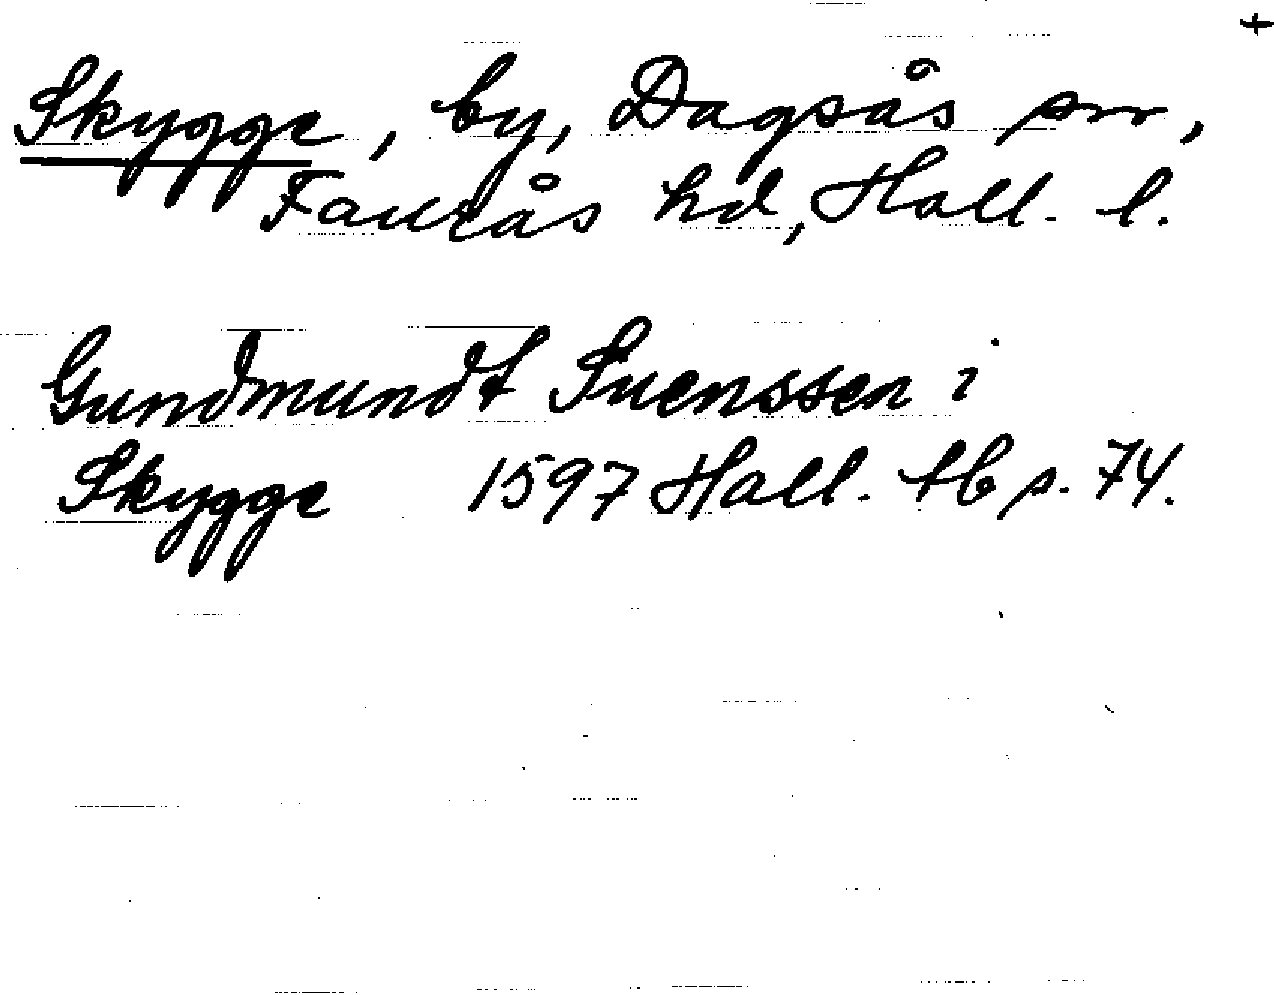 +
Skygge, by, Dagsås sn,
Faurås hd, Hall. l.
Gundmundt Suenssen i
Skygge 1597 Hall. tb s. 74.